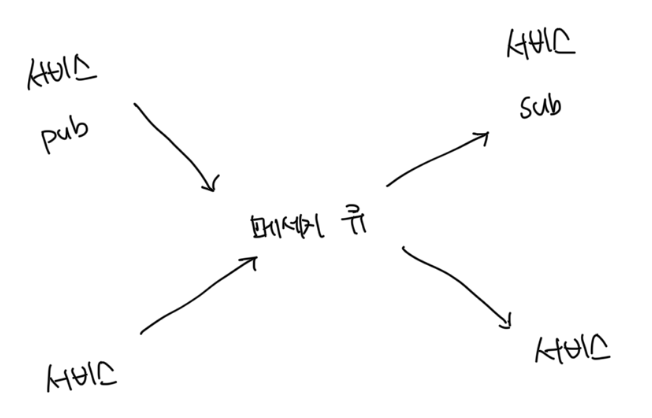 서비스
pub
서비스
sub
메세지 큐
서비스
서비스